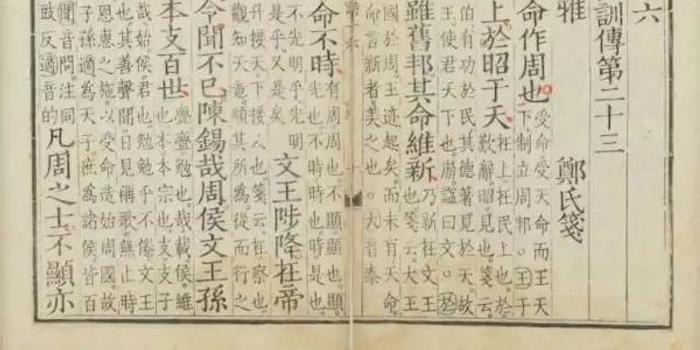 六
訓傳第二十三
雅 鄭氏箋
命作周也 受命受天命而王天
下制立周邦○王于
上於昭于天 在上在民上也於
歎辭昭見也箋云
伯有功於民其德著見於天故
王使君天下也崩謚曰文○於
雖舊邦其命維新 乃新在文王
也箋云大王
國於周王迹起矣而未有天命
命言新者美之也○大音泰
命不時 有周周也不顯顯也顯
光也不時時也時是也
不光明乎光明
是乎又是矣
文王陟降在帝
升接天下接人也箋云在察也
觀知天意順其所為從而行之
令聞不已陳錫哉周侯文王孫
本支百世 亹亹勉也哉載侯維
也本本宗也支支子
哉始侯君也勉勉乎不倦文王
也其善聲聞日見稱歌無止時
恩惠之施以受命造始周國故
子孫適為天子庶為諸侯皆百
聞音問注同
豉反適音的
凡周之士不顯亦